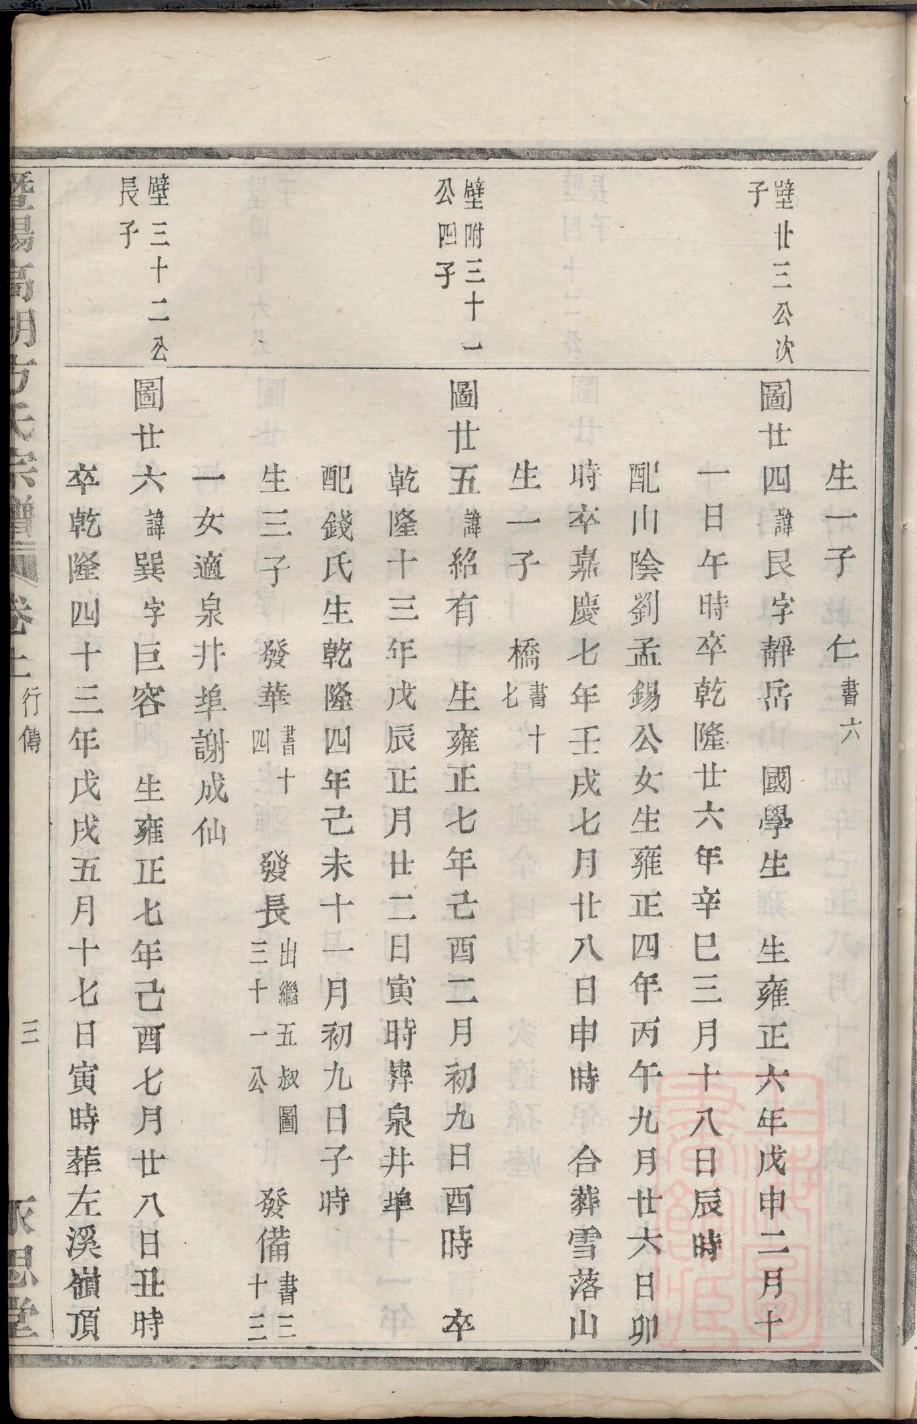 生一子　仁書六
璧廿三公次子
圖廿四諱艮字靜岳　國學生　生雍正六年戊申二月十
一日午時卒乾隆廿六年辛巳三月十八日辰時
配山陰劉孟錫公女生雍正四年丙午九月廿六日卯
時卒嘉慶七年壬戌七月廿八日申時　合葬雪落山
生一子　橋書十七
璧附三十一公四子
圖廿五諱紹有　生雍正七年己酉二月初九日酉時　卒
乾隆十三年戊辰正月廿二日寅時葬泉井埠
配錢氏生乾隆四年己未十一月初九日子時
生三子　發華書十四　發長出繼五叔圖三十一公　發備書三十三
一女適泉井埠謝成仙
璧三十二公長子
圖廿六諱巽字巨容　生雍正七年己酉七月廿八日丑時
卒乾隆四十三年戊戌五月十七日寅時葬左溪嶺頂
暨陽高湖方氏宗譜　卷上　行傳　三　永思堂